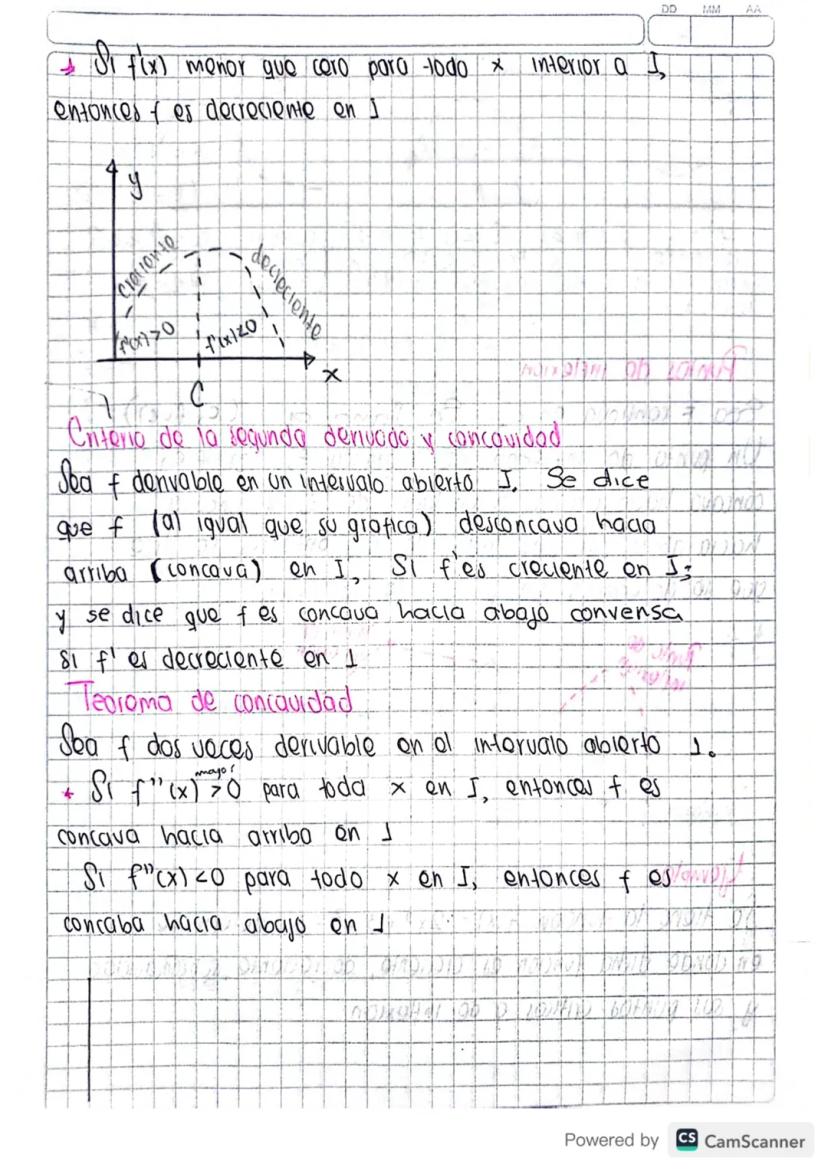 DD MM AA
→ Si f'(x) menor que cero para todo x interior a I,
entonces f es decreciente en I
y
creciente
decreciente
f'(x)>0
f'(x)<0
x
C
Criterio de la segunda derivada y concavidad
Sea f derivable en un intervalo abierto I. Se dice
que f (al igual que su grafica) desconcava hacia
arriba (concava) en I, Si f'es creciente en I;
y se dice que f es concava hacia abajo convensa
si f' es decreciente en I
Teorema de concavidad
Sea f dos veces derivable en el intervalo abierto I.
mayor
* Si f''(x) > 0 para toda x en I, entonces f es
concava hacia arriba en I
Si f''(x) <0 para todo x en I, entonces f es
concaba hacia abajo en I
Powered by CS CamScanner